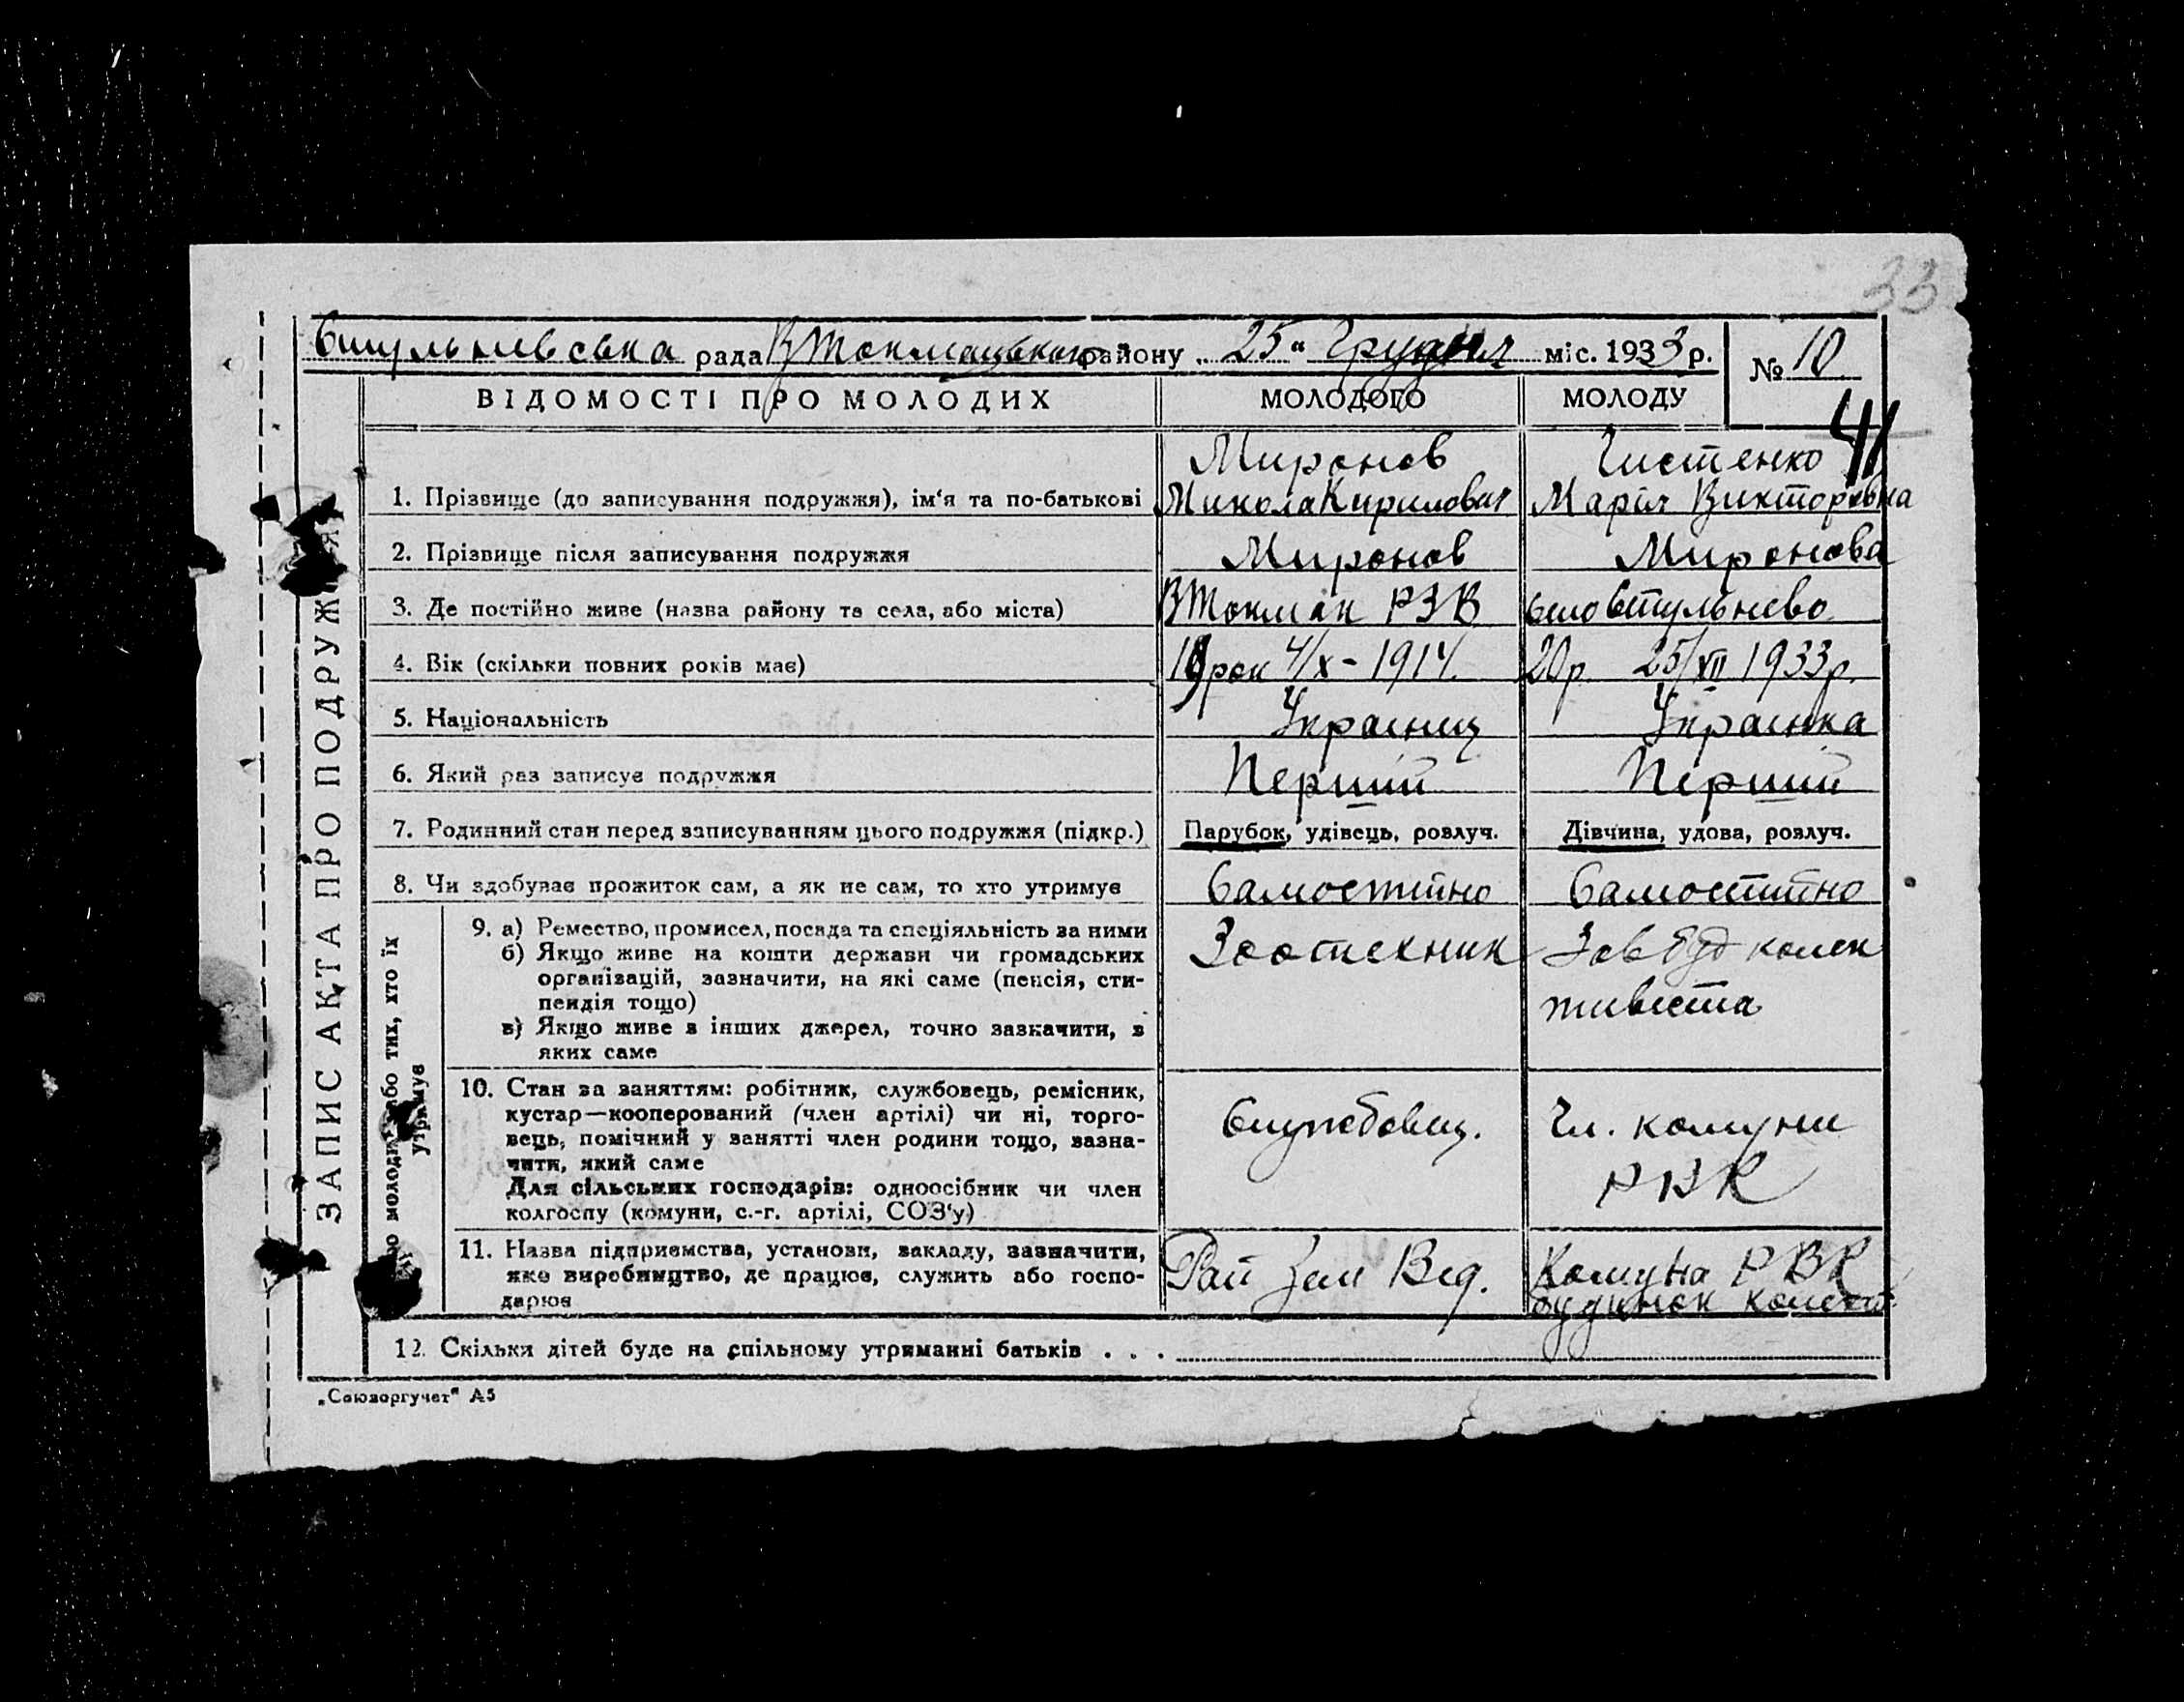 33
Стульневська рада ВТокмацького району „25“ Грудня міс. 1933 р. № 10
41
ВІДОМОСТІ ПРО МОЛОДИХ МОЛОДОГО МОЛОДУ
Миронов Чистенко
1. Прізвище (до записування подружжя), ім‘я та по-батькові Микола Кирилович Марія Викторовна
2. Прізвище після записування подружжя Миронов Миронова
3. Де постійно живе (назва району та села, або міста) ВТокмак РЗВ село Стульнево
4. Вік (скільки повних років має) 19 рок 4/X-1914. 20 р. 25/XII 1933 р.
5. Національність Украінец Украінка
6. Який раз записує подружжя Перший Перший
7. Родинний стан перед записуванням цього подружжя (підкр.) Парубок, удівець, розлуч. Дівчина, удова, розлуч.
8. Чи здобуває прожиток сам, а як не сам, то хто утримує Самостійно Самостійно
9. а) Ремество, промисел, посада та спеціяльність за ними Зоотехник Зав буд колек
б) Якщо живе на кошти держави чи громадських тивіста
організацій, зазначити, на які саме (пенсія, сти-
пендія тощо)
в) Якщо живе з інших джерел, точно зазначити, з
яких саме
10. Стан за заняттям: робітник, службовець, ремісник,
кустар—кооперований (член артілі) чи ні, торго- Службовец. Чл. комуни
вець, помічний у занятті член родини тощо, зазна- РВК
чити, який саме
Для сільських господарів: одноосібник чи член
колгоспу (комуни, с.-г. артілі, СОЗ‘у)
11. Назва підприємства, установи, закладу, зазначити, Рай Зем Від. Комуна РВК
яке виробництво, де працює, служить або госпо- будинок колект
дарює
12. Скільки дітей буде на спільному утриманні батьків . . .
„Союзоргучет“ А5
ЗАПИС АКТА ПРО ПОДРУЖ
або тих, хто їх
утримує